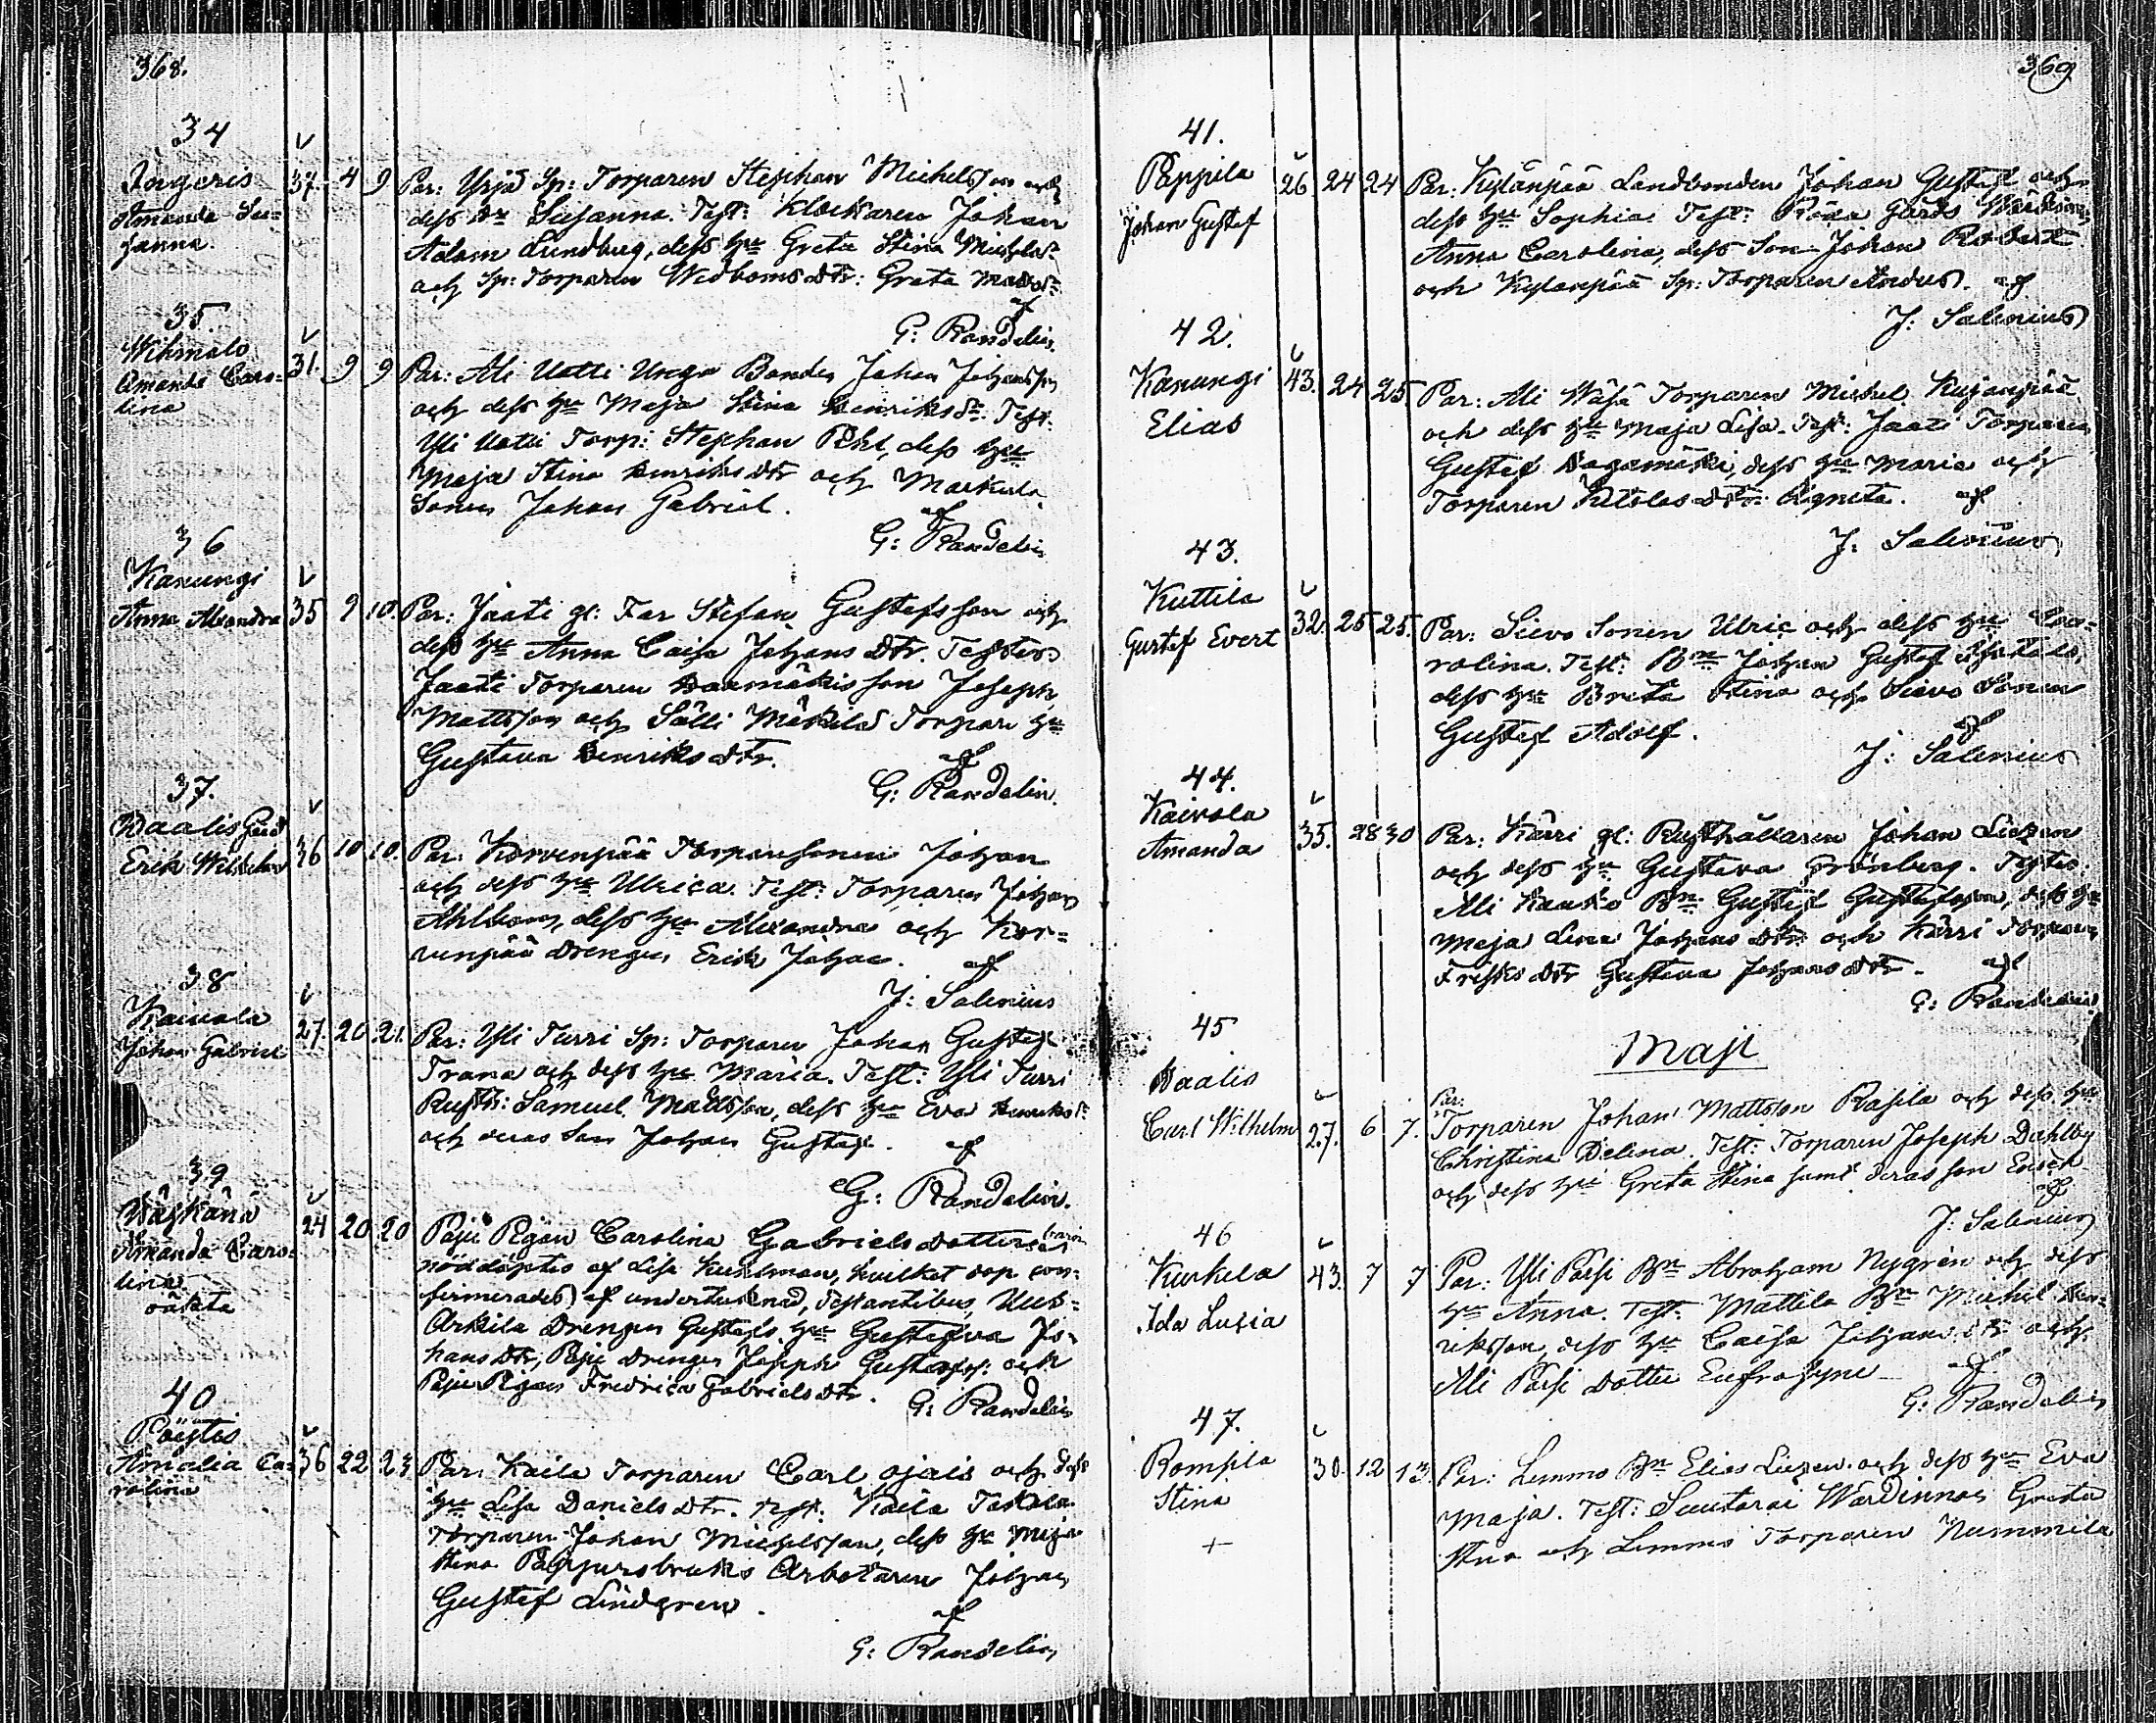 368.
34
Ingeris
Amanda Su=
sanna.
37. 4 9
Par: Yrjä Sp: Torparen Stephan Michelsson och
dess Hu Susanna. Test: Klockaren Johan
Adam Lundberg, dess Hu Greta Stina Michelsdr
och Sp: Torparen Wedboms dtr: Greta
af
G: Randelin.
35.
Amanda Caro=
lina
31. 9 9
Par: Ali Uotti Unga Bonden Johan Johansson
och dess Hu Maja Stina Henriksdr. Test:
Yli Uotti Torp: Stephan dess Hu
Maja Stina Henriks dtr och Markula
Sonen Johan Gabriel.
af
G: Randelin
36
Kanungi
Anna Alexandra
35 9 10.
Par: Jaati gl: Far Stefan Gustafsson och
dess Hu Anna Caisa Johans dtr. Testes:
Jaati Torparen Haramäkis son Joseph
Mattsson och Sälli Mäkilä Torpare Hu
Gustava Henriks dtr.
af
G: Randelin.
37.
Waalis
Erik Wilhelm
36 10 10.
Par: Korvenpää Torparesonen Johan
och dess Hu Ulrica. Test: Torparen Johan
Ahlbom, dess Hu Alexandra och Kor=
venpää Drengen Erik Johan.
af
J: Salenius
38
Kaivola
Johan Gabriel
27. 20 21.
Par: Yli Turri Sp: Torparen Johan Gustaf
Trana och dess Hu Maria. Test: Yli Turri
Rusth: Samuel Mattsson, dess Hu Eva Henriksdr
och deras Son Johan Gustaf.
af
G: Randelin.
39
Väskänä
Amanda Caro=
lina
oäkta
24 20 20
Paju Pigan Carolina Gabriels dotters barn
nöddöptes af Lisa Kuhlman, hvilket dop con=
firmerades af undertecknad, Testantibus
Arkila Drengen Gustafs Hu Gustafva Jo=
hans dtr, Paju Drengen Joseph Gustafss: och
Paju Pigan Fredrica Gabriels dtr.
G: Randelin
40
Pöytis
Amalia Ca=
rolina
36 22 23
Par: Kaila Torparen Carl Ojais och dess
Hu Lisa Daniels dtr. Test: Kaila Taskala
Torparen Johan Michelsson, dess Hu Maja
Stina Pappersbruks Arbetaren Johan
Gustaf Lindgren.
af
G: Randelin
369
41.
Pappila
Johan Gustaf
26 24 24
Par: Kylänpää Landbonden Johan Gustaf och
dess Hu Sophia. Test: Gårds Wärdinnan
Anna Carolina, dess Son Johan Robert
och Kylänpää Sp: Torparen Anders. af
J: Salenius
42.
Kanungi
Elias
43. 24 25.
Par: Ali Wähä Torparen Michel Kujanpää
och dess Hu Maja Lisa. Test: Jaati Torparen
Gustaf Haramäki, dess Hu Maria och
Torparen dtr: Agneta. af
J: Salenius
43.
Kuttila
Gustaf Evert
32. 25 25.
Par: Sievo Sonen Ulric och dess Hu Ca=
rolina. Test: Bn Johan Gustaf
dess Hu Brita Stina och Sievo Sonen
Gustaf Adolf.
af
J: Salenius
44.
Kaivola
Amanda
35. 28 30
Par: Kärri gl: Rusthållaren Johan Liezen
och dess Hu Gustava Grönberg. Testes:
Ali Kausto Bn: Gustaf Gustafsson, dess Hu
Maja Lena Johans dtr och Kärri Torparen
Frisks dtr Gustava Johans dtr. af
G: Randelin
45
Maji
Waalis
Carl Wilhelm
27. 6 7.
Par:
Torparen Johan Mattsson Rasila och dess Hu
Christina Delina. Test: Torparen Joseph Dahlby
och dess Hu Greta Stina samt deras son
af
J: Salenius
46
Kurkela
Ida Lusia
43. 7 7
Par: Yli Pärsi Bn Abraham Nygrén och dess
Hu Anna. Test: Mattila Bn Michel Hen=
riksson, dess Hu Caisa Johans dtr och
Ali Pärsi Dotter Eufrosyne
af
G: Randelin
47.
Rompila
Stina
+
30. 12 13.
Par: Lemmo Bn Elias Liezen och dess Hu Eva
Maja. Test: Suutarai Wärdinnan Greta
Stina och Lemmo Torparen Nummila